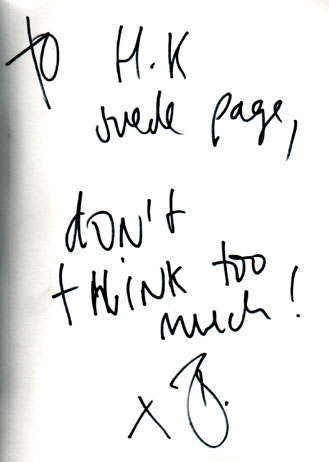 to H.K
suede page,
don't
THINK too
much!
x B.